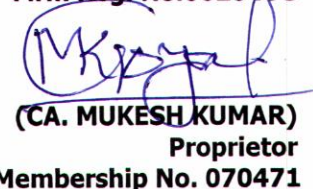 (CA. MUKESH KUMAR)
Proprietor
Membership No. 070471